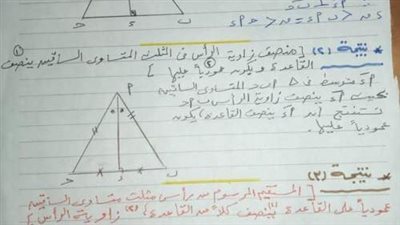 * نتيجة (٢) [منصف زاوية الرأس فى المثلث المتساوى الساقين ينصف
القاعدة و يكون عموديًا عليها ]
متوسط فى △ المتساوى الساقين
بحيث ينصف زاوية الرأس
نستنتج أن ينصف القاعدة، يكون
عموديًا عليها.
* نتيجة (٣)
[ المستقيم المرسوم من رأس مثلث متساوى الساقين
عموديًا على القاعدة (١) ينصف كلاً من القاعدة، (٢) زاوية الرأس ]